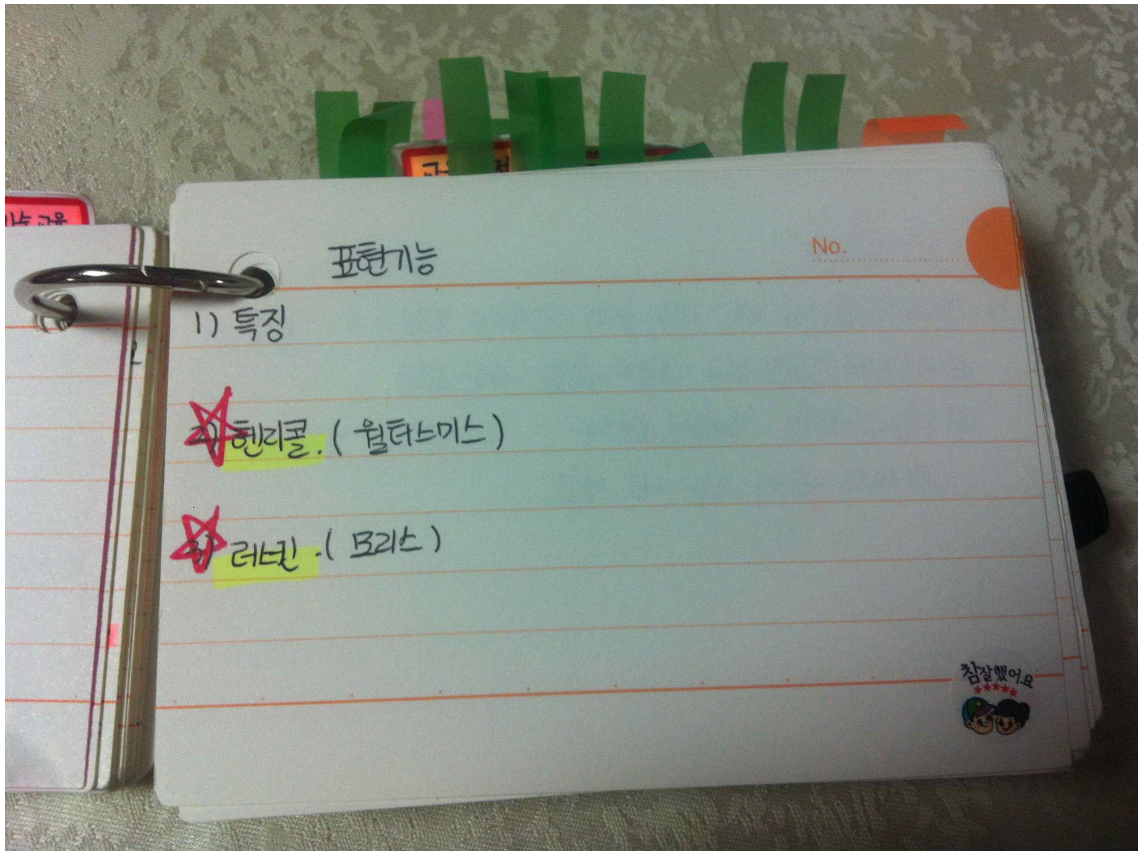 표현기능
No.
1) 특징
2) 헨리콜. ( 월터스미스 )
3) 러스킨. ( 모리스 )
참잘했어요